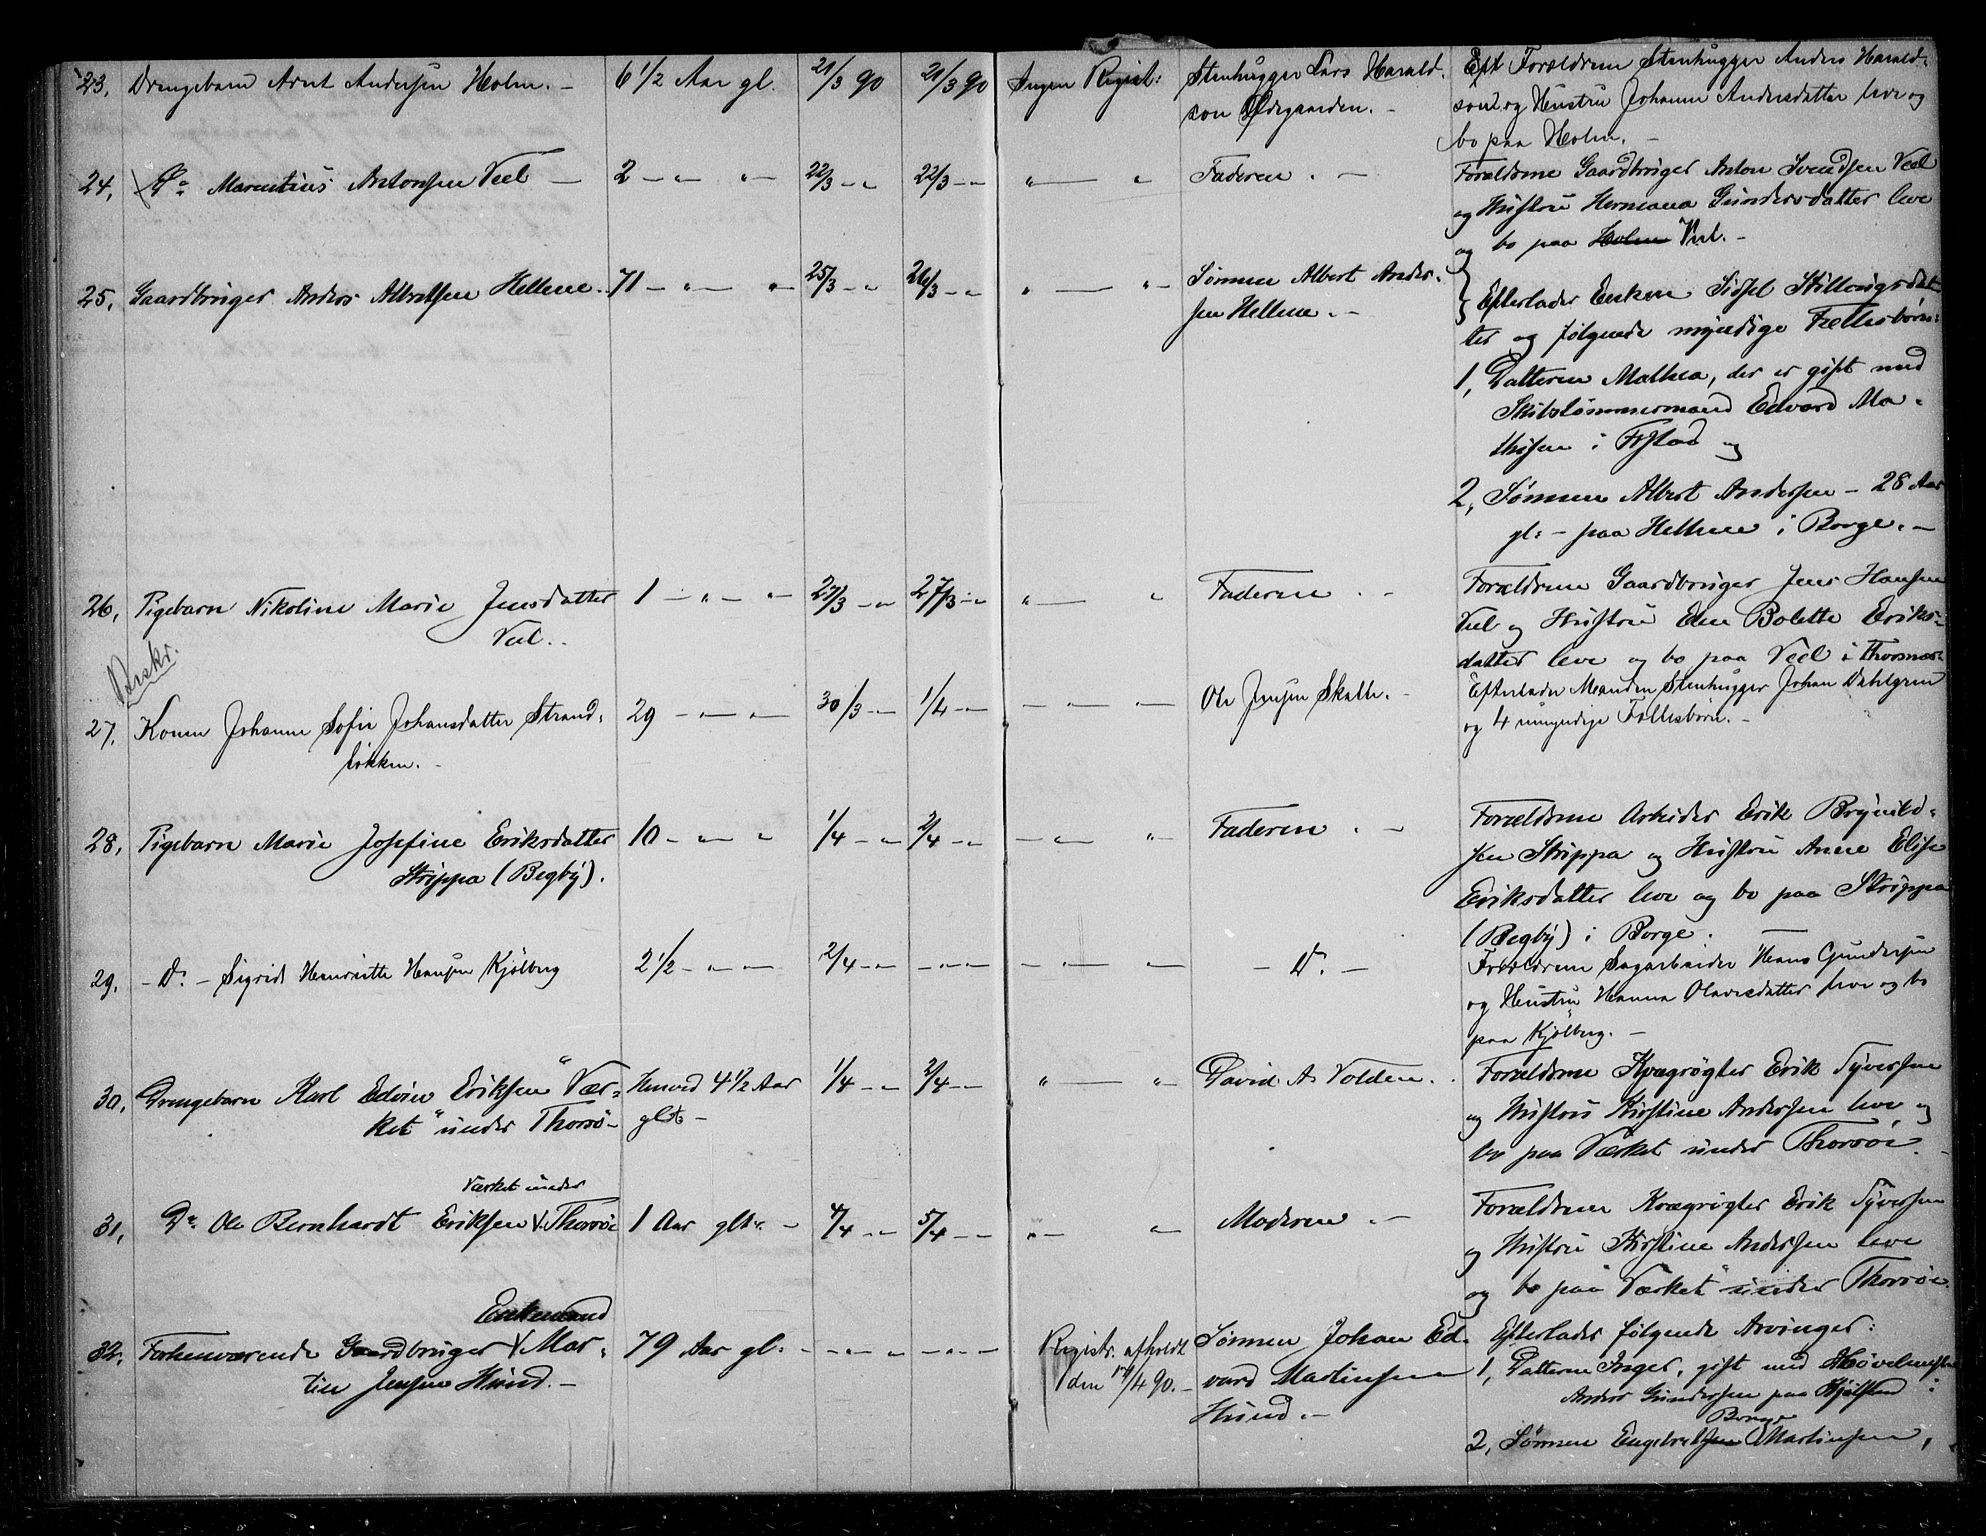 23. Drengebarn Arnt Andersen Holm. – 6 1/2 Aar gl. 21/3 90 21/3 90 Ingen Regist: Stenhugger Lars Harald-
son Ødegaarden. –
Eft Forældrene Stenhugger Anders Harald-
son og Hustru Johanne Andersdatter leve og
bo paa Holm. –
24. Do Marentius Antonsen Veel – 2 – " – " 22/3 – " 22/3 – " " – " Faderen. –
Forældrene Gaardbruger Anton Svendsen Veel
og Hustru Hermana Gundersdatter leve
og bo paa Holm Vel. –
25. Gaardbruger Anders Albretsen Hellene. 71 – " – " 25/3 – " 26/3 – " " – " Sønnen Albert Ander-
sen Hellene. –
Efterlader Enken Sidsel Kittersdat
ter og følgende myndige Fællesbørn:
1, Datteren Mathea, der er gift med
Skibstømmermand Edvard Ma-
thisen i Fjstad og
2, Sønnen Albert Andersen – 28 Aar
gl: – paa Hellene i Borge. –
26. Pigebarn Nikoline Marie Jensdatter 1 – " – " 27/3 – " 27/3 – " " – " Faderen. –
Vel. –
Forældrene Gaardbruger Jens Hansen
Vel og Hustru Elen Bolette Eriks-
datter leve og bo paa Veel i Thorsnæs.
27. Konen Johanne Sofie Johansdatter Strand- 29 – " – " 30/3 – " 1/4 – " – " – Ole Jensen Skatte. –
løkken. –
Efterlader Manden Stenhugger Johan Dahlgren
og 4 umyndige Fællesbørn. –
28. Pigebarn Marie Josefine Eriksdatter 10 – " – " 1/4 – " 2/4 – " – " – " Faderen. –
Strippa (Begby).
Forældrene Arbeider Erik Brynild-
sen Strippa og Hustru Anne Elise
Eriksdatter leve og bo paa Strippa
(Begby) i Borge.
29. – Do – Sigrid Henriette Hansen Kjølberg 2 1/2 – " – " 2/4 – " – " – " – " – – Do –
Forældrene Sagarbeider Hans Gundersen
og Hustru Hanna Olavesdatter leve og bo
paa Kjølberg. –
30. Drengebarn Karl Edvin Eriksen "Vær- Henved 4 1/2 Aar 1/4 – " 2/4 – " " – " David A. Volden.
ket" under Thorsø – glt –
Forældrene Kvægrøgter Erik Syversen
og Hustru Kirstine Andersen leve og
bo paa Værket under Thorsøe.
Værket under
31. Do Ole Bernhardt Eriksen V. Thorsøe 1 Aar glt. – 4/4 – " 5/4 – " " – " Moderen. –
Forældrene Kvægrøgter Erik Syversen
og Hustru Kirstine Andersen leve
og bo paa "Værket" under Thorsøe.
Enkemand
32. Forhenværende Gaardbruger V Mar- 79 Aar gl: – " – " – " – Registr. afholdt
tin Jensen Hund. –
den 17/4 90. –
Sønnen Johan Ed-
vard Martinsen
Hund. –
Efterlader følgende Arvinger:
1, Datteren Inger, gift med Høvelmester
Anders Gundersen paa Kjølstad i
Borge
2, Sønnen Engebretsen Martinsen,